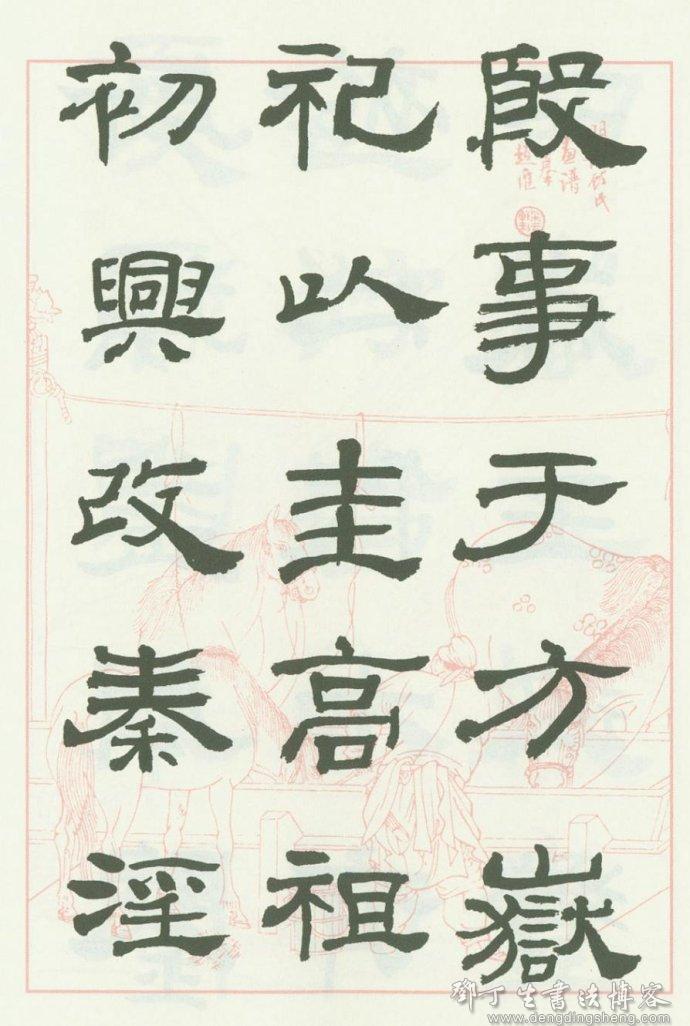 殷事于方嶽
祀以圭高祖
初興改秦淫
鄧丁生書法博客
www.dengdingsheng.com